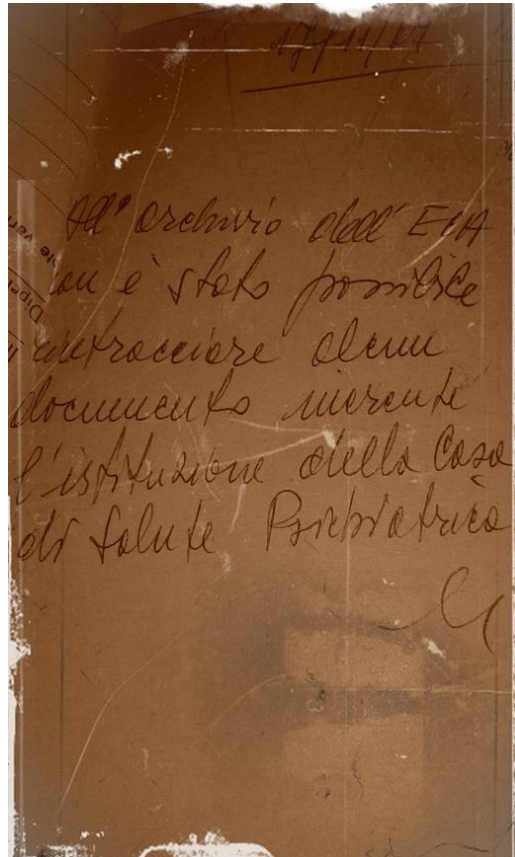 All'archivio dell'ECA
non è stato possibile
rintracciare alcun
documento inerente
l'istituzione della Casa
di Salute Psichiatrica